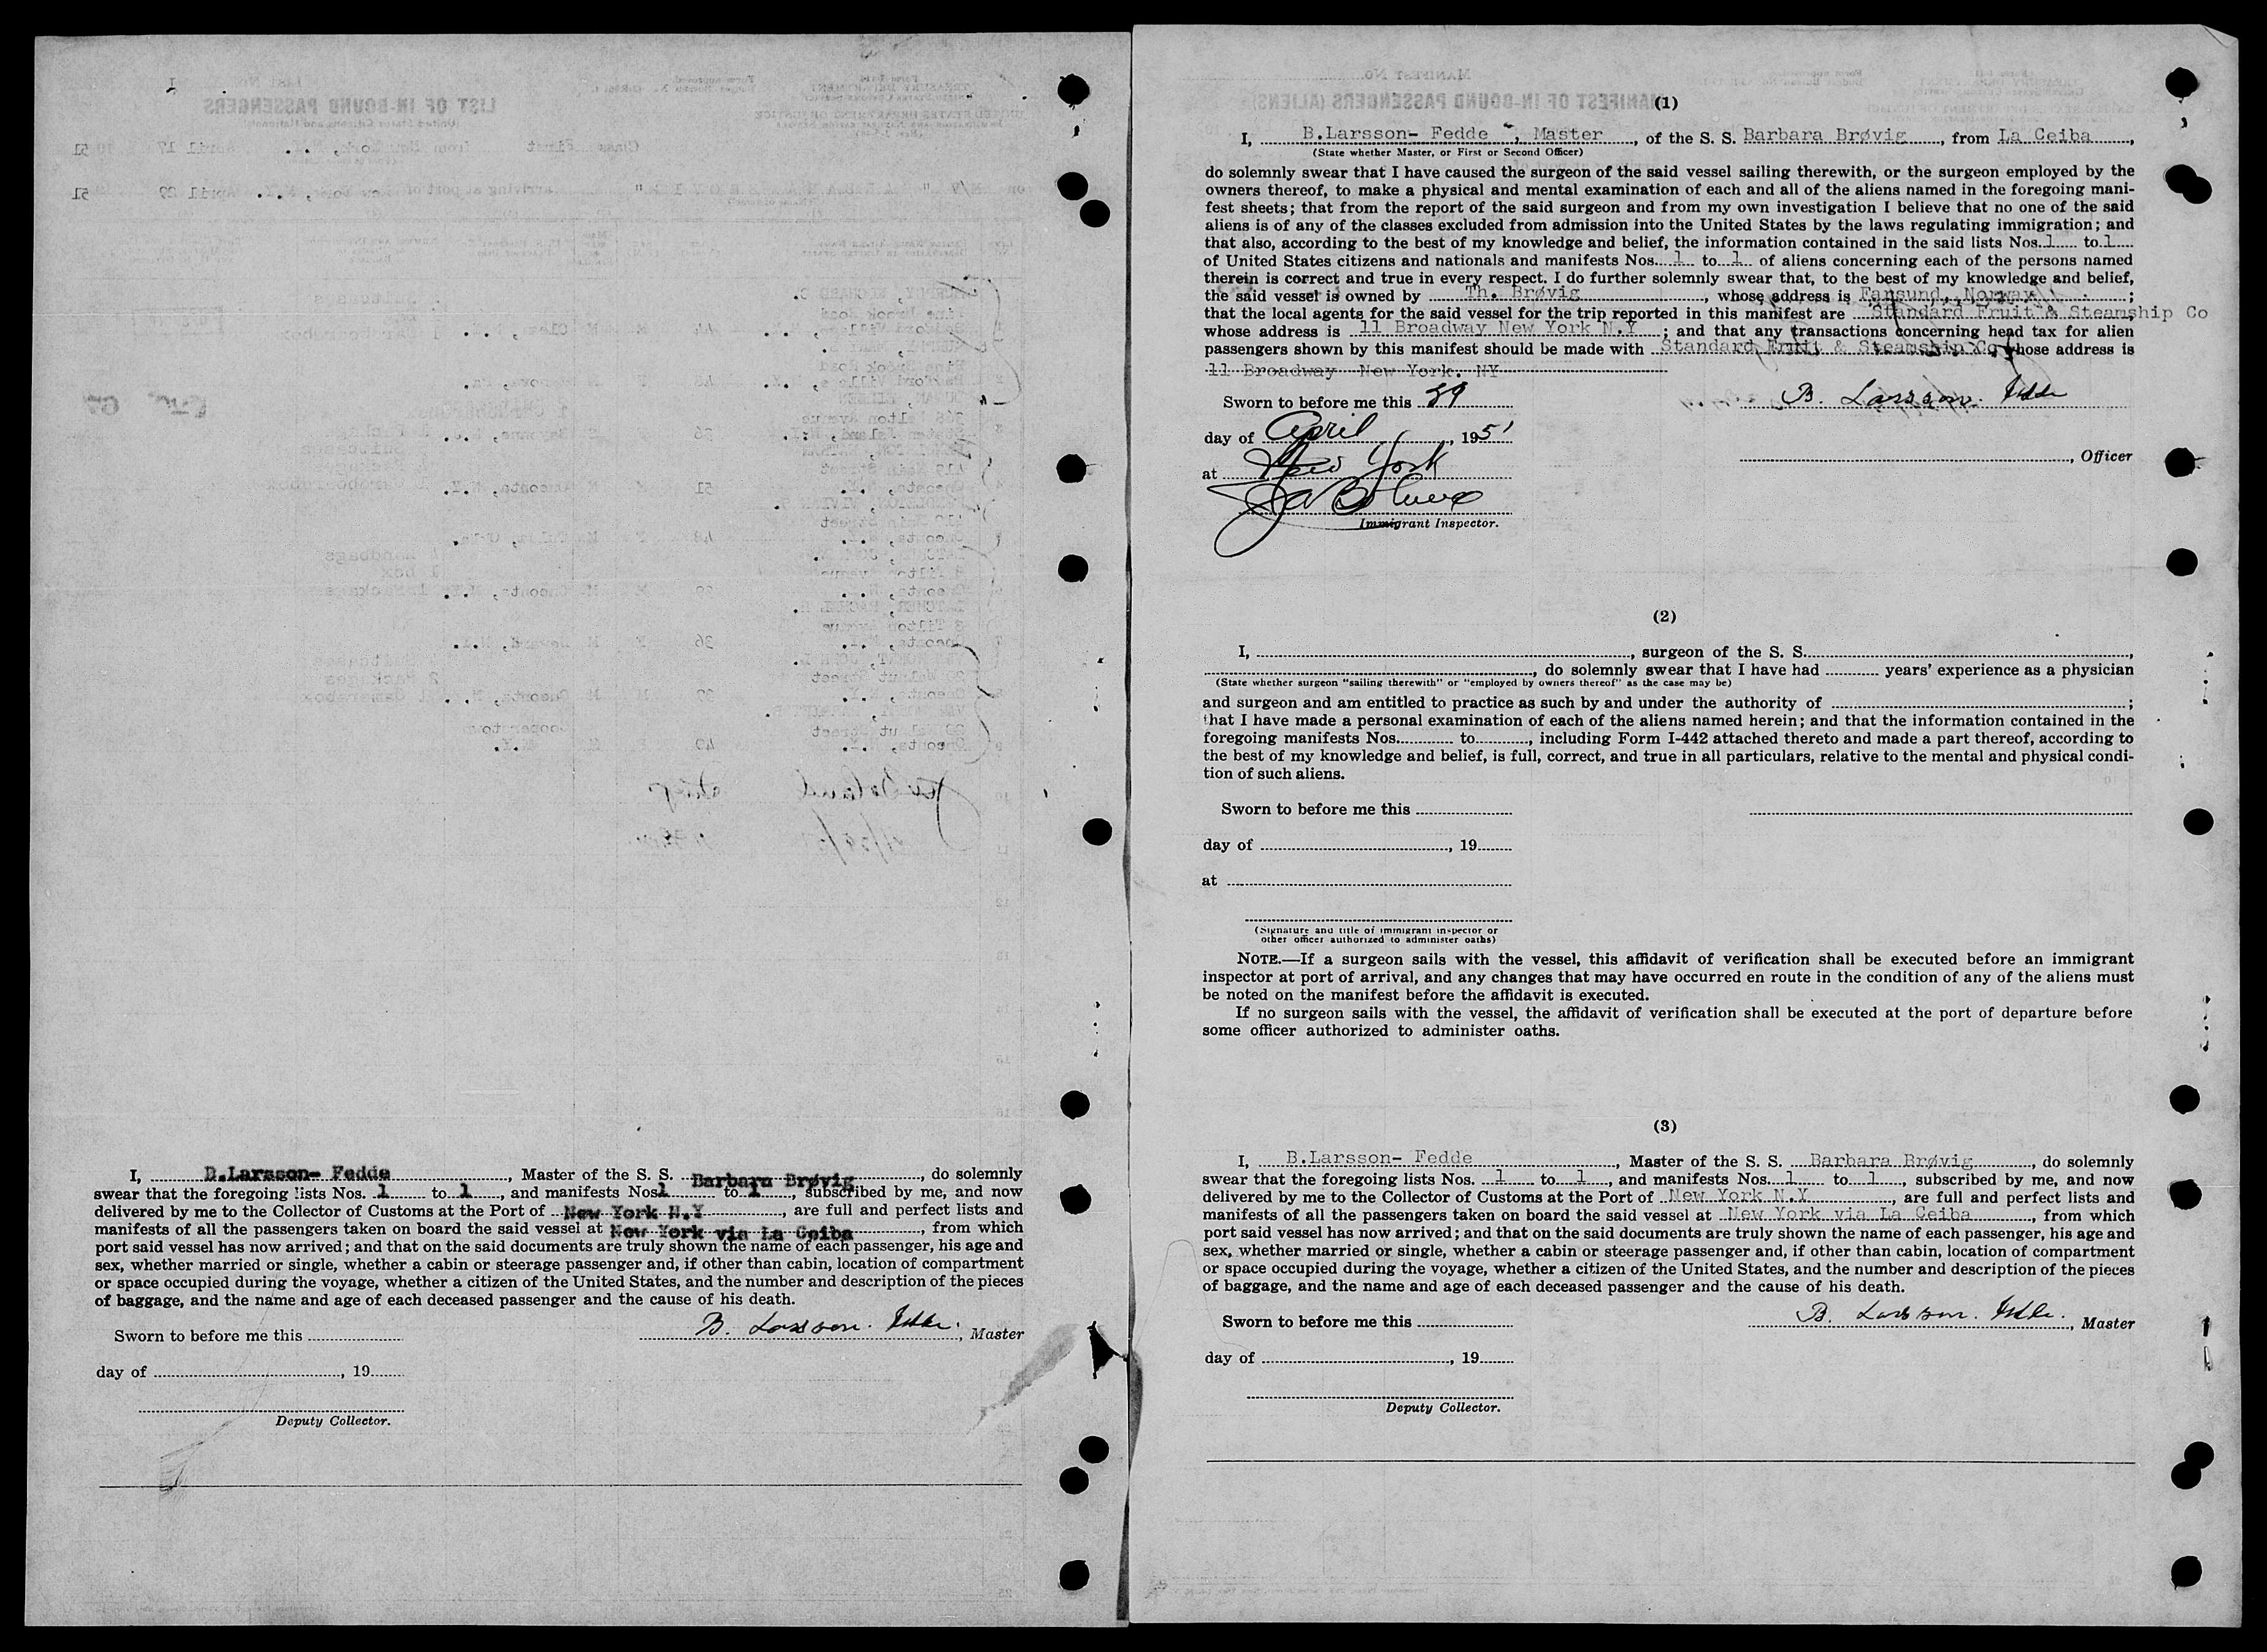 I, B.Larsson- Fedde, Master of the S. S. Barbara Brøvig, do solemnly
swear that the foregoing lists Nos. 1 to 1, and manifests Nos 1 to 1, subscribed by me, and now
delivered by me to the Collector of Customs at the Port of New York N.Y, are full and perfect lists and
manifests of all the passengers taken on board the said vessel at New York via La Ceiba, from which
port said vessel has now arrived; and that on the said documents are truly shown the name of each passenger, his age and
sex, whether married or single, whether a cabin or steerage passenger and, if other than cabin, location of compartment
or space occupied during the voyage, whether a citizen of the United States, and the number and description of the pieces
of baggage, and the name and age of each deceased passenger and the cause of his death.
Sworn to before me this
B. Larsson. Fedde., Master
day of , 19
Deputy Collector.
(1)
I, B.Larsson- Fedde , Master, of the S. S. Barbara Brøvig, from La Ceiba,
(State whether Master, or First or Second Officer)
do solemnly swear that I have caused the surgeon of the said vessel sailing therewith, or the surgeon employed by the
owners thereof, to make a physical and mental examination of each and all of the aliens named in the foregoing mani-
fest sheets; that from the report of the said surgeon and from my own investigation I believe that no one of the said
aliens is of any of the classes excluded from admission into the United States by the laws regulating immigration; and
that also, according to the best of my knowledge and belief, the information contained in the said lists Nos. 1 to 1
of United States citizens and nationals and manifests Nos. 1 to 1 of aliens concerning each of the persons named
therein is correct and true in every respect. I do further solemnly swear that, to the best of my knowledge and belief,
the said vessel is owned by Th. Brøvig, whose address is Farsund, Norway;
that the local agents for the said vessel for the trip reported in this manifest are Standard Fruit & Steamship Co
whose address is 11 Broadway New York N.Y; and that any transactions concerning head tax for alien
passengers shown by this manifest should be made with Standard Fruit & Steamship Co whose address is
11 Broadway New York. NY
Sworn to before me this 29
B. Larsson. Fedde
day of April, 1951
, Officer
at New York
Immigrant Inspector.
(2)
I, , surgeon of the S. S. ,
, do solemnly swear that I have had years' experience as a physician
(State whether surgeon "sailing therewith" or "employed by owners thereof" as the case may be)
and surgeon and am entitled to practice as such by and under the authority of ;
that I have made a personal examination of each of the aliens named herein; and that the information contained in the
foregoing manifests Nos. to , including Form I-442 attached thereto and made a part thereof, according to
the best of my knowledge and belief, is full, correct, and true in all particulars, relative to the mental and physical condi-
tion of such aliens.
Sworn to before me this
day of , 19
at
(Signature and title of immigrant inspector or
other officer authorized to administer oaths)
NOTE.—If a surgeon sails with the vessel, this affidavit of verification shall be executed before an immigrant
inspector at port of arrival, and any changes that may have occurred en route in the condition of any of the aliens must
be noted on the manifest before the affidavit is executed.
If no surgeon sails with the vessel, the affidavit of verification shall be executed at the port of departure before
some officer authorized to administer oaths.
(3)
I, B.Larsson- Fedde, Master of the S. S. Barbara Brøvig, do solemnly
swear that the foregoing lists Nos. 1 to 1, and manifests Nos. 1 to 1, subscribed by me, and now
delivered by me to the Collector of Customs at the Port of New York N.Y, are full and perfect lists and
manifests of all the passengers taken on board the said vessel at New York via La Ceiba, from which
port said vessel has now arrived; and that on the said documents are truly shown the name of each passenger, his age and
sex, whether married or single, whether a cabin or steerage passenger and, if other than cabin, location of compartment
or space occupied during the voyage, whether a citizen of the United States, and the number and description of the pieces
of baggage, and the name and age of each deceased passenger and the cause of his death.
Sworn to before me this
B. Larsson. Fedde., Master
day of , 19
Deputy Collector.